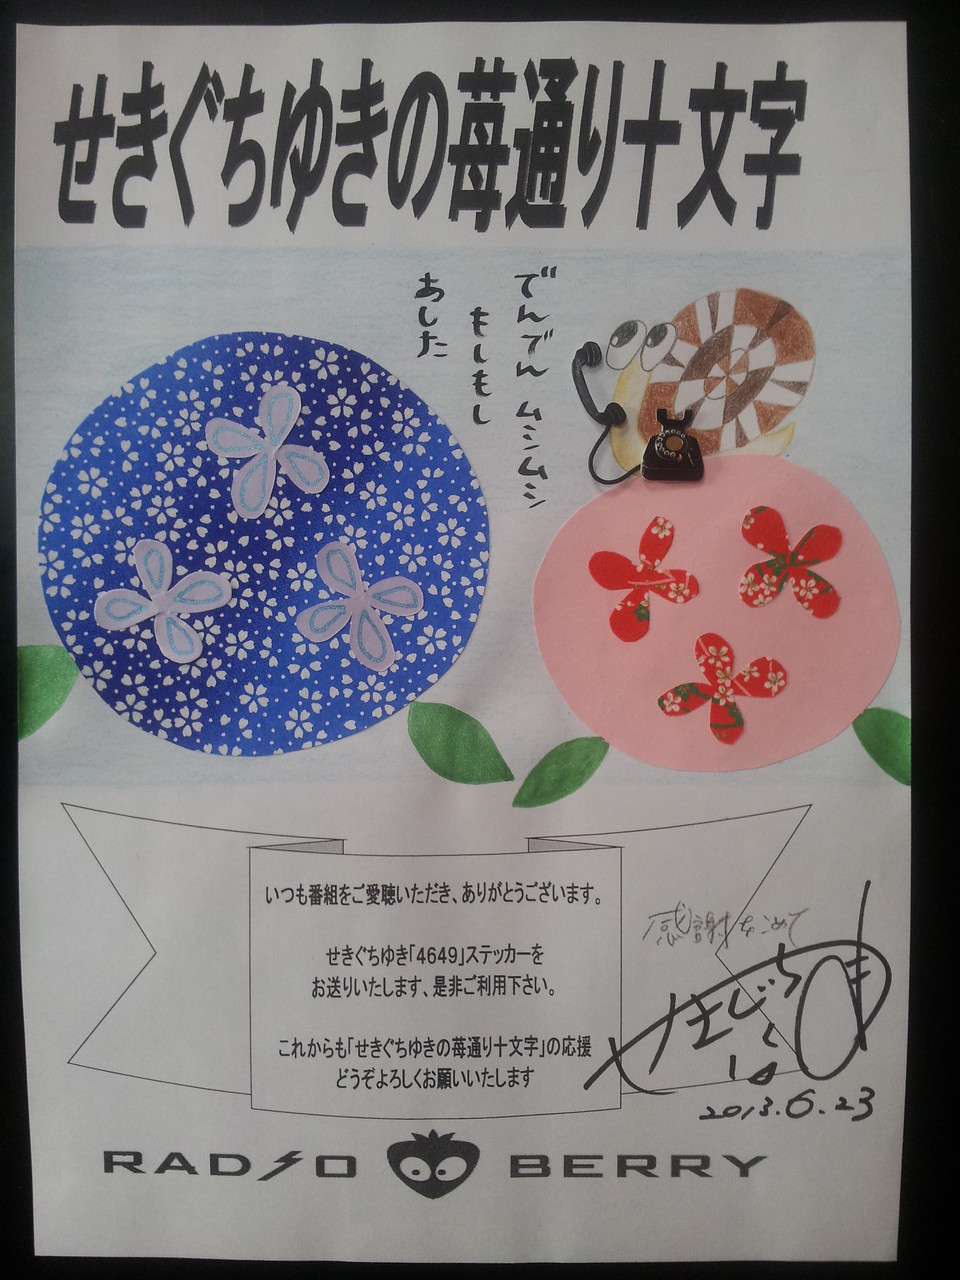 せきぐちゆきの苺通り十文字
でんでん ムシムシ
もしもし
あした
いつも番組をご愛聴いただき、ありがとうございます。
せきぐちゆき「4649」ステッカーを
お送りいたします、是非ご利用下さい。
これからも「せきぐちゆきの苺通り十文字」の応援
どうぞよろしくお願いいたします
感謝をこめて
せきぐちゆき
2013.6.23
RADIO BERRY